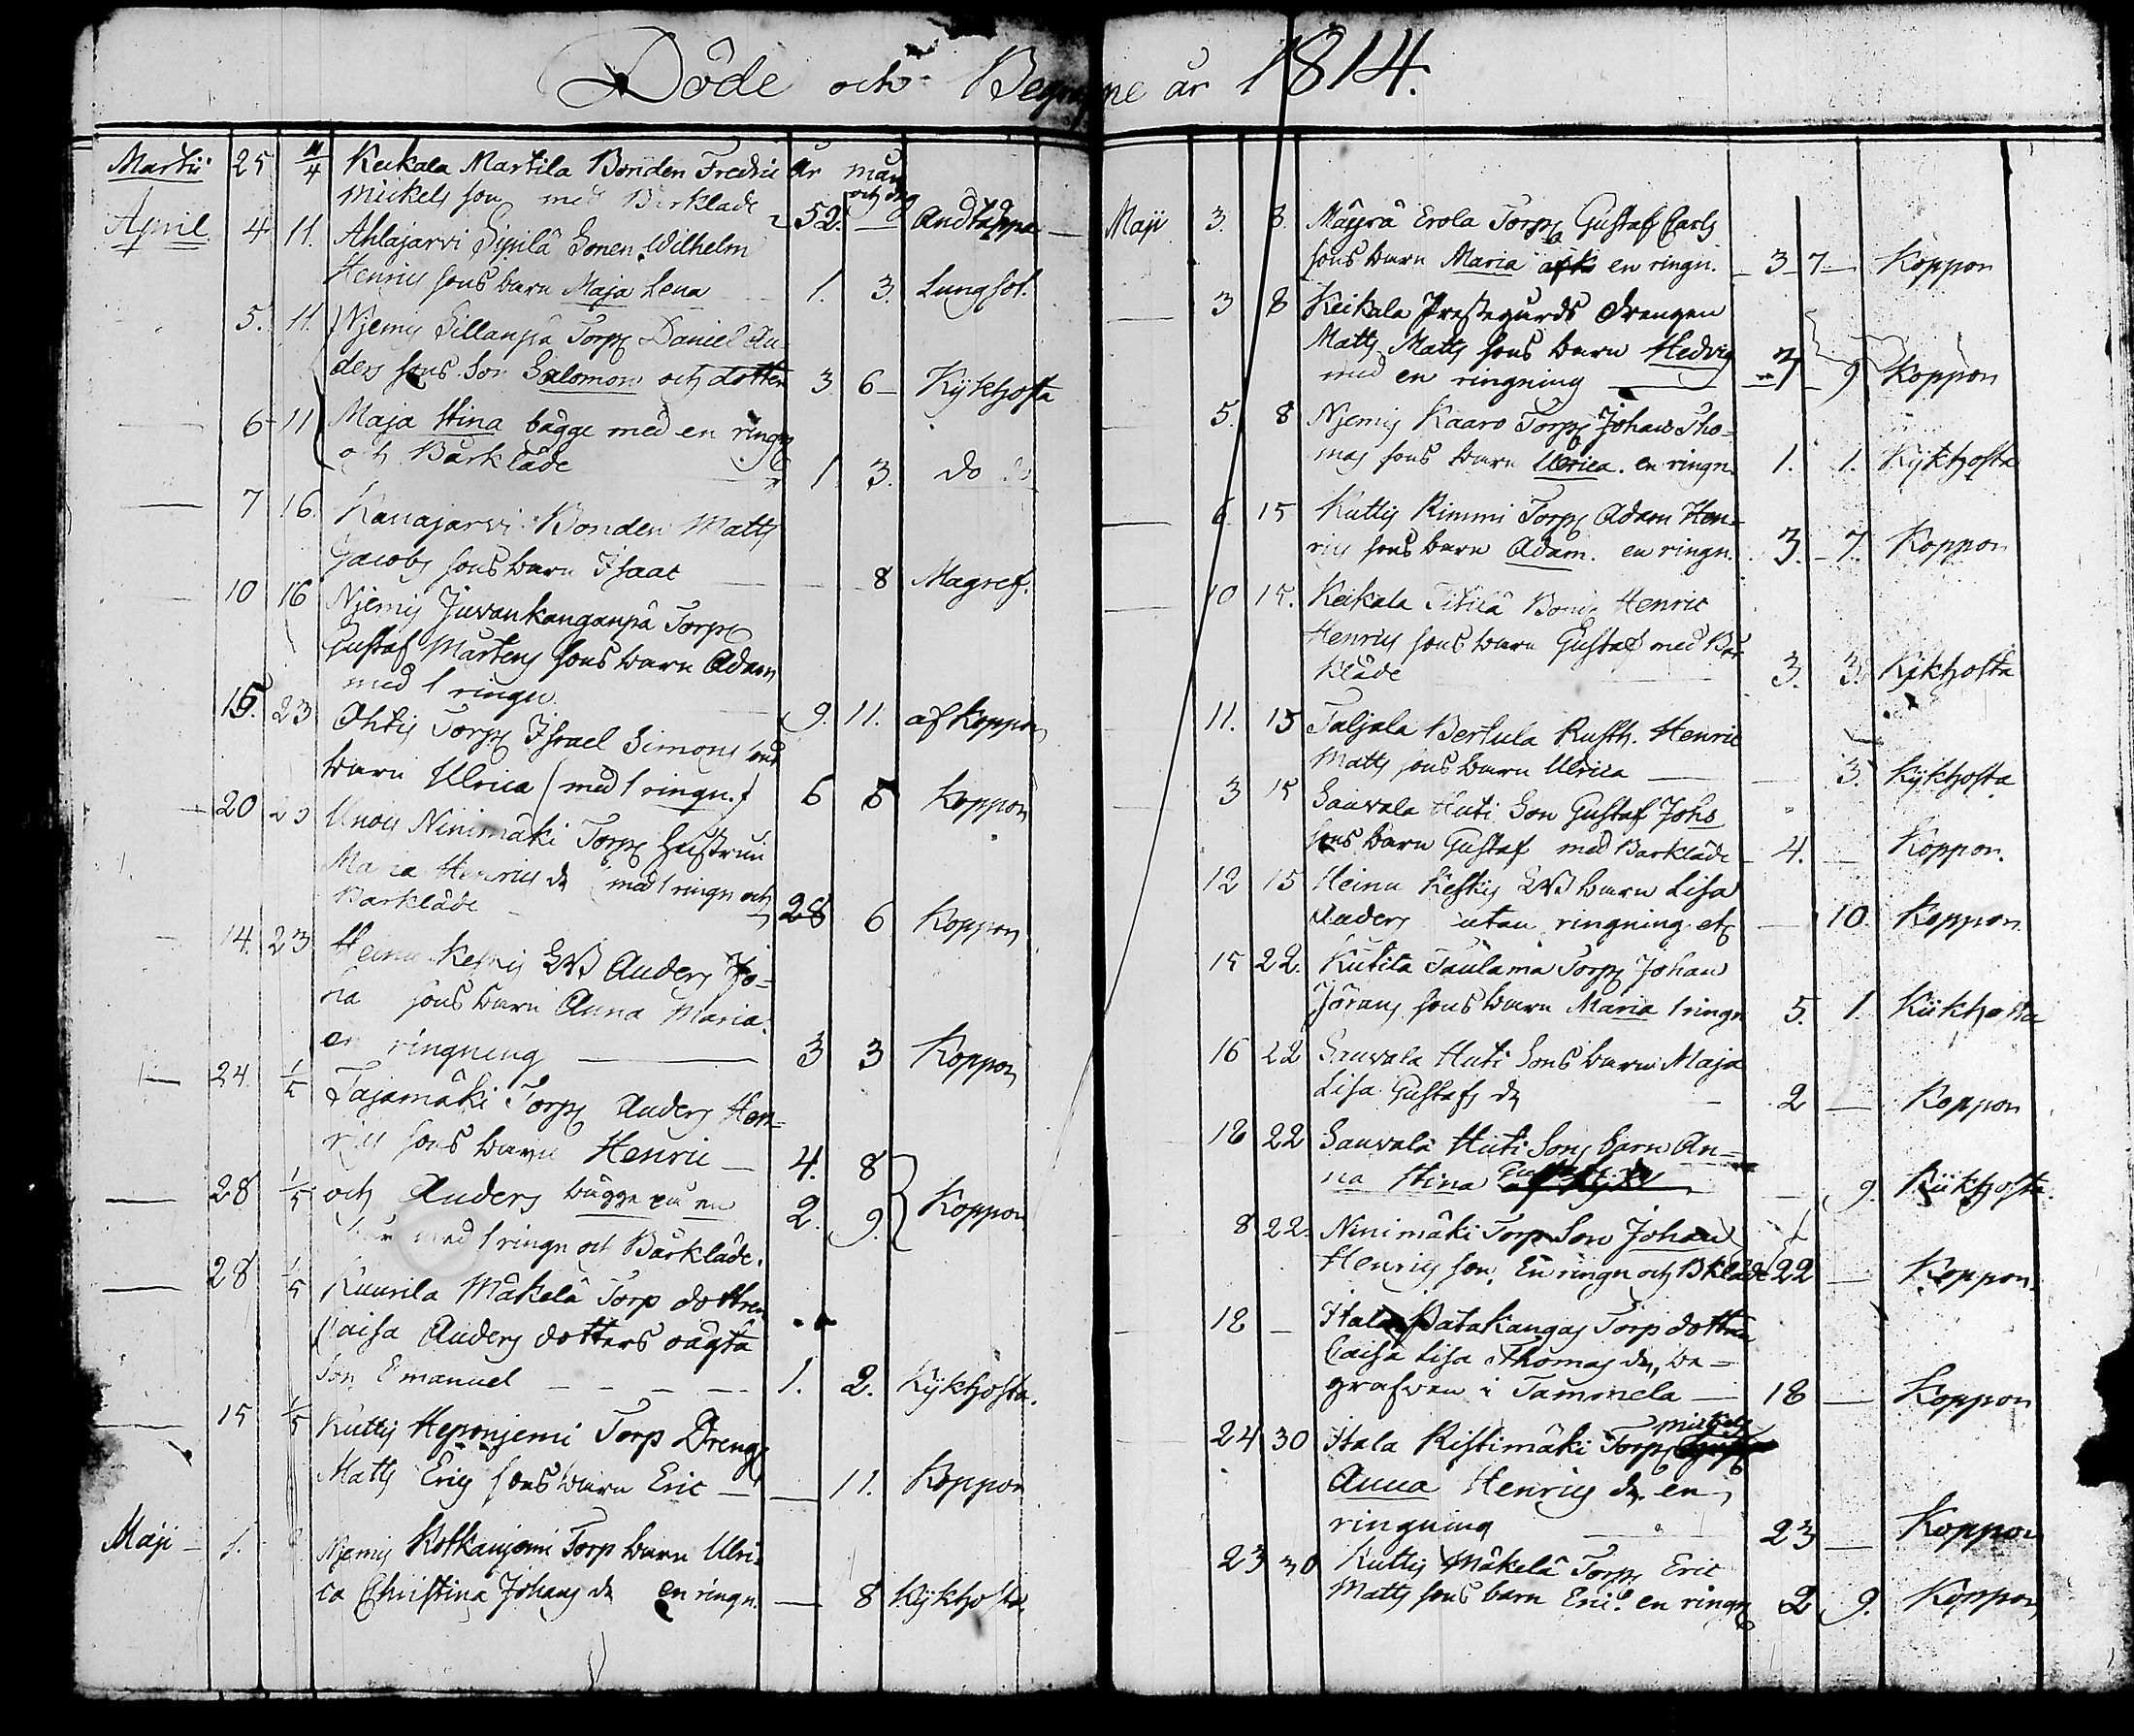 Döde och Begrafne år 1814.
Martii 25 11/4 Keikala Martila Bonden Fredric år mån och dag
Mickels son med Bårkläde 52. — Andtäppa
April 4 11. Ahlajarvi Sipilä Sonen Wilhelm
Henrics sons barn Maja Lena 1. 3. Lungsot.
5. 11. Njemis Sillanpä Torps Daniel An-
ders sons Son Salomon och dotter 3 6 — Kykhosta
6 11 Maja Stina bägge med en ringn
och Bårkläde 1. 3. do do
— 7 16. Kanajarvi Bonden Matts
Jacobs sons barn Isaac — 8 Magref.
10 16 Njemis Juvankanganpä Torps
Gustaf Mårtens sons barn Adam
med 1 ringn 9. 11. af Koppor
15. 23 Ohtis Torps Israel Simons sons
barn Ulrica (med 1 ringn.) 6 5 Koppor
20 23 Unois Ninimäki Torps Hustrun
Maria Henrics dr (med 1 ringn och
Barkläde 28 6 Koppor
14. 23 Heinu Keskis Anders Jo-
ha sons barn Anna Maria.
en ringning — 3 3 Koppor
24. 1/5 Tajamäki Torps Anders Hen-
rics sons barn Henric — 4. 8
— 28 1/5 och Anders bägge på en
bår med 1 ringn och Bårkläde. 2. 9. Koppor
— 28 1/5 Kuurila Mäkelä Torp dottren
Caisa Anders dotters oägta
Son Emanuel — — — — 1. 2. Kykhosta.
— 15 1/5 Kuttis Heponjemi Torp Drengs
Matts Erics sons barn Eric — — 11. Koppor
Maji — 1. 8 Njemis Kotkanjemi Torp barn Ulri-
ca Christina Johans dr en ringn. — 8 Kykhosta.
Maji 3. 8. Mäyrä Erola Torps Gustaf Carls
sons barn Maria en ringn. — 3 7 — Koppor
— 3 8 Keikala Prestegårds Drengen
Matts Matts sons barn Hedvig
med en ringning — 7 9 Koppor
5. 8 Njemis Kaaro Torps Johan Tho-
mas sons barn Ulrica. en ringn. 1. 1. Kykhosta
— 6 15 Kuttis Rimmi Torps Adam Hen-
rics sons barn Adam. en ringn. 3. 7. Koppor
— 10 15. Keikala Titilä Bonds Henric
Henrics sons barn Gustaf med Bår
kläde 3. 3. Kykhosta
11. 15 Taljala Bertula Rusth. Henric
Matts sons barn Ulrica — 3. Kykhosta
3 15 Sauvala Huti Son Gustaf Johs
sons barn Gustaf med Barkläde 4. — Koppor.
12 15 Heinu Keskis barn Lisa
Anders utan ringning etc — 10. Koppor.
15 22. Kutila Taulama Torps Johan
Jörans sons barn Maria 1 ringn 5. 1. Kikhosta
16 22 Sauvala Huti Sons barn Maja
Lisa Gustafs dr 2 — Koppor
18 22 Sauvala Huti Sons barn An-
na Stina — 9. Kikhosta.
8 22. Ninimäki Torp Son Johan
Henrics son. En ringn och Bkläde 22 — Koppor.
18 — Itala Patakangas Torp dottren
Caisa Lisa Thomas dr, be-
grafven i Tammela — 18 — Koppor
24 30 Itala Ristimäki Torps Mickels
Anna Henrics dr. en
ringning 23 — Koppor
23 30 Kuttis Mäkelä Torps Eric
Matts sons barn Eric. en ringn 2 9. Koppor